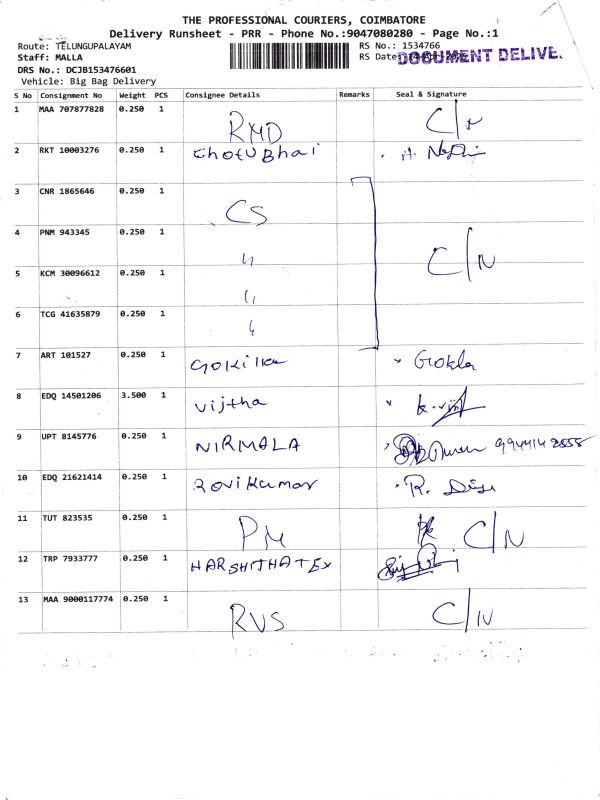 THE PROFESSIONAL COURIERS, COIMBATORE
Delivery Runsheet - PRR - Phone No.:9047080280 - Page No.:1
Route: TELUNGUPALAYAM RS No.: 1534766
Staff: MALLA RS Date: DOCUMENT DELIVE.
DRS No.: DCJB153476601
Vehicle: Big Bag Delivery
S No Consignment No Weight PCS Consignee Details Remarks Seal & Signature
1 MAA 707877828 0.250 1 RMD C/N
2 RKT 10003276 0.250 1 Chotu Bhai
3 CNR 1865646 0.250 1 CS
4 PNM 943345 0.250 1 " C/N
5 KCM 30096612 0.250 1 "
6 TCG 41635879 0.250 1 "
7 ART 101527 0.250 1 Gokila Gokila
8 EDQ 14501206 3.500 1 Vijtha
9 UPT 8145776 0.250 1 NIRMALA 9944142558
10 EDQ 21621414 0.250 1 Ravikumar R.
11 TUT 823535 0.250 1 PM C/N
12 TRP 7933777 0.250 1 HARSHITHA TEX
13 MAA 9000117774 0.250 1 RVS C/N